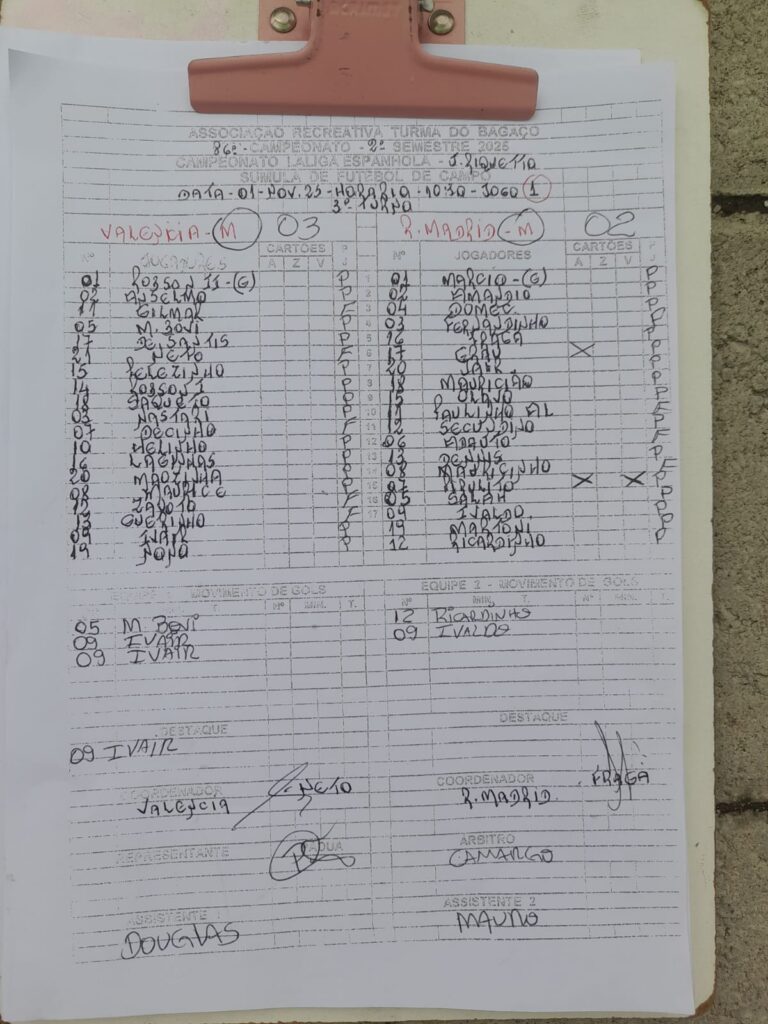 ASSOCIAÇÃO RECREATIVA TURMA DO BAGAÇO
86º - CAMPEONATO - 2º SEMESTRE 2025
CAMPEONATO LALIGA ESPANHOLA - J. RIQUETTO
SUMULA DE FUTEBOL DE CAMPO
DATA - 01 - NOV. 25 - HORARIO - 10:30 - JOGO 1
3º TURNO
VALENCIA - M 03 R. MADRID - M 02
Nº JOGADORES CARTÕES P Nº JOGADORES CARTÕES P
A Z V J A Z V J
01 ROSSON II - (G) P 1 01 MARCIO - (G) P
02 ANSELMO P 2 02 AMANDIO P
11 GILMAR F 3 04 DOMEC P
05 M. BONI P 4 03 FERNANDINHO P
17 DE SANTIS P 5 16 FRAGA P
21 NETO F 6 17 GRAU X P
15 FELEZINHO P 7 20 JAIR P
14 ROSSON I P 8 18 MAURICIÃO P
P 9 15 OLAVO P
03 NASTARI P 10 11 PAULINHO AL
07 DECINHO F 11 12 SECUNDINO
10 HELINHO P 12 06
16 LAGINHAS P 13 13 DENNIS
20 MAOZINHA P 14 08 MAURICINHO
08 MAURICE P 15 07 X X
F 16 05 SALAH
13 GUERINHO P 17 09 IVALDO
09 IVAIR P 19 MARTONI
19 NONO P 12 RICARDINHO
EQUIPE 1 - MOVIMENTO DE GOLS EQUIPE 2 - MOVIMENTO DE GOLS
Nº MIN. T. Nº MIN. T. Nº MIN. T. Nº MIN. T.
05 M. BONI 12 RICARDINHO
09 IVAIR 09 IVALDO
09 IVAIR
DESTAQUE DESTAQUE
09 IVAIR
COORDENADOR NETO COORDENADOR FRAGA
VALENCIA R. MADRID
REPRESENTANTE PADUA ÁRBITRO
CAMARGO
ASSISTENTE 1 ASSISTENTE 2
DOUGLAS MAURO